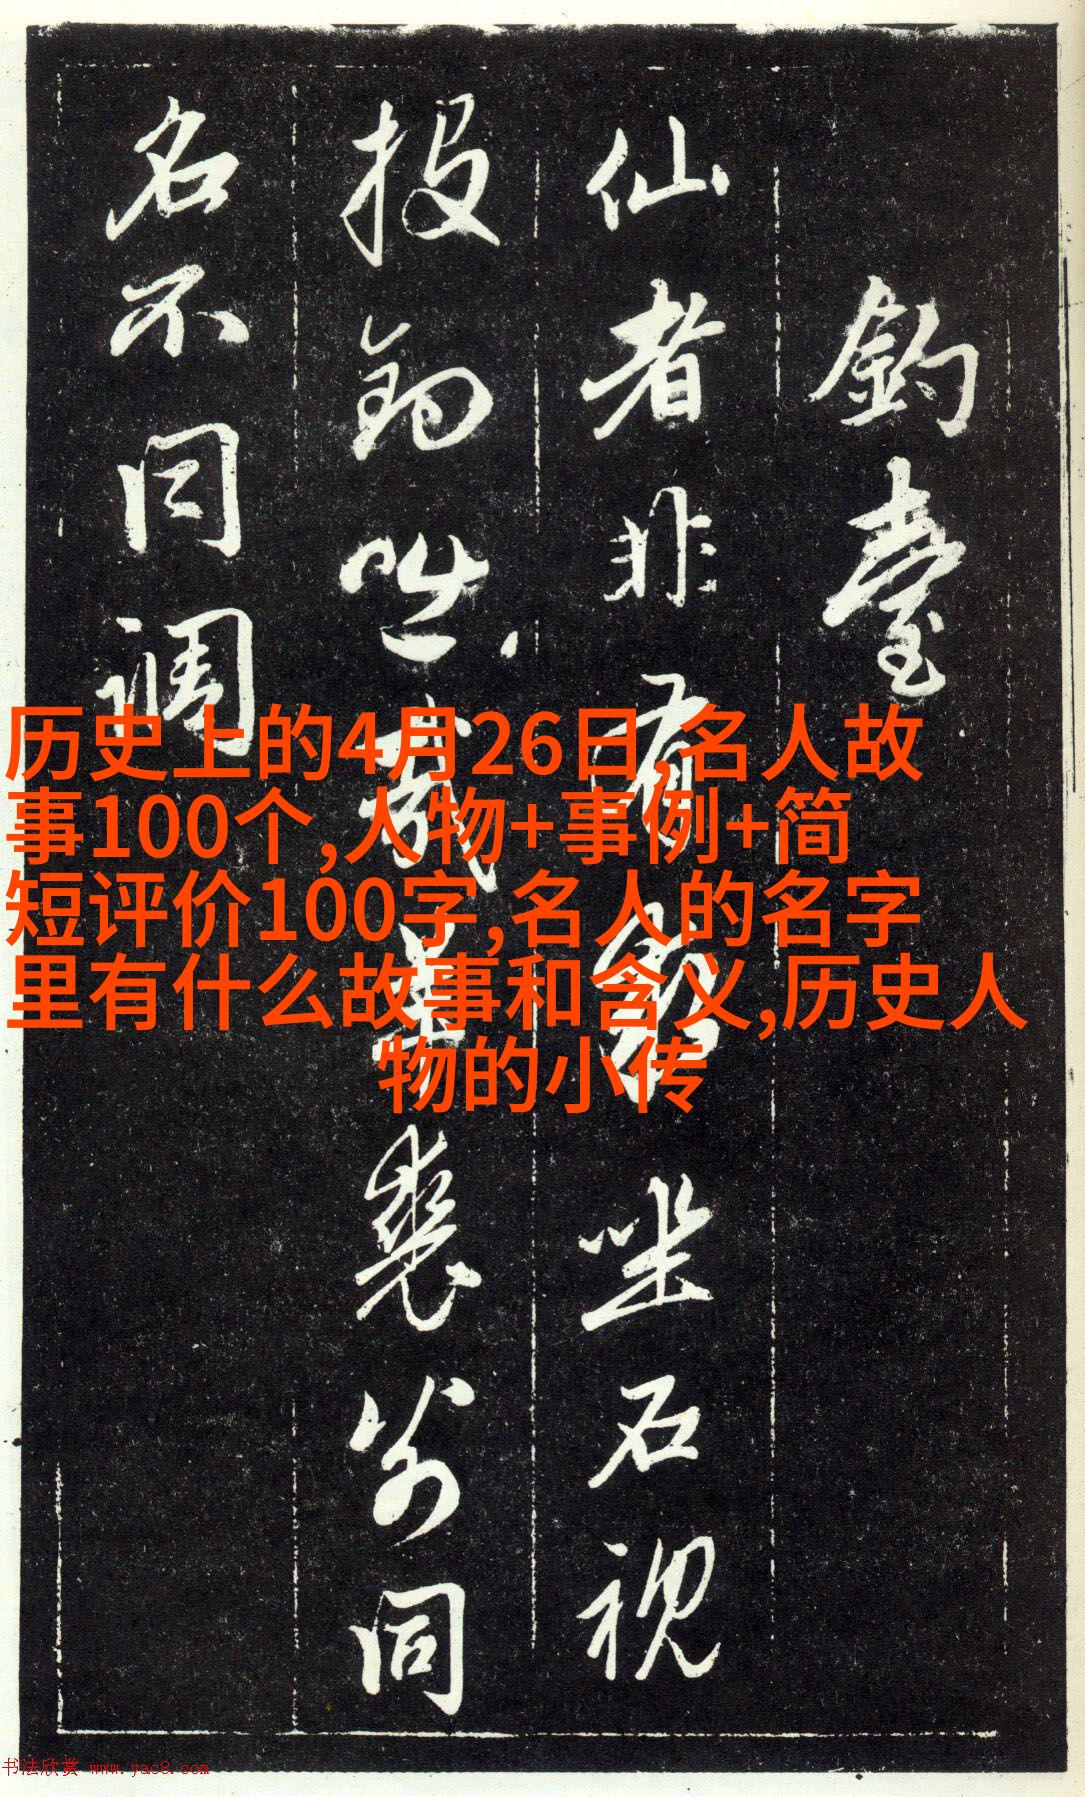 釣臺
仙者非有坐石視
投咄哉裘同
名不同調
历史上的4月26日,名人故
事100个,人物+事例+简
短评价100字,名人的名字
里有什么故事和含义,历史人
物的小传
书法欣赏 www.yac8.com